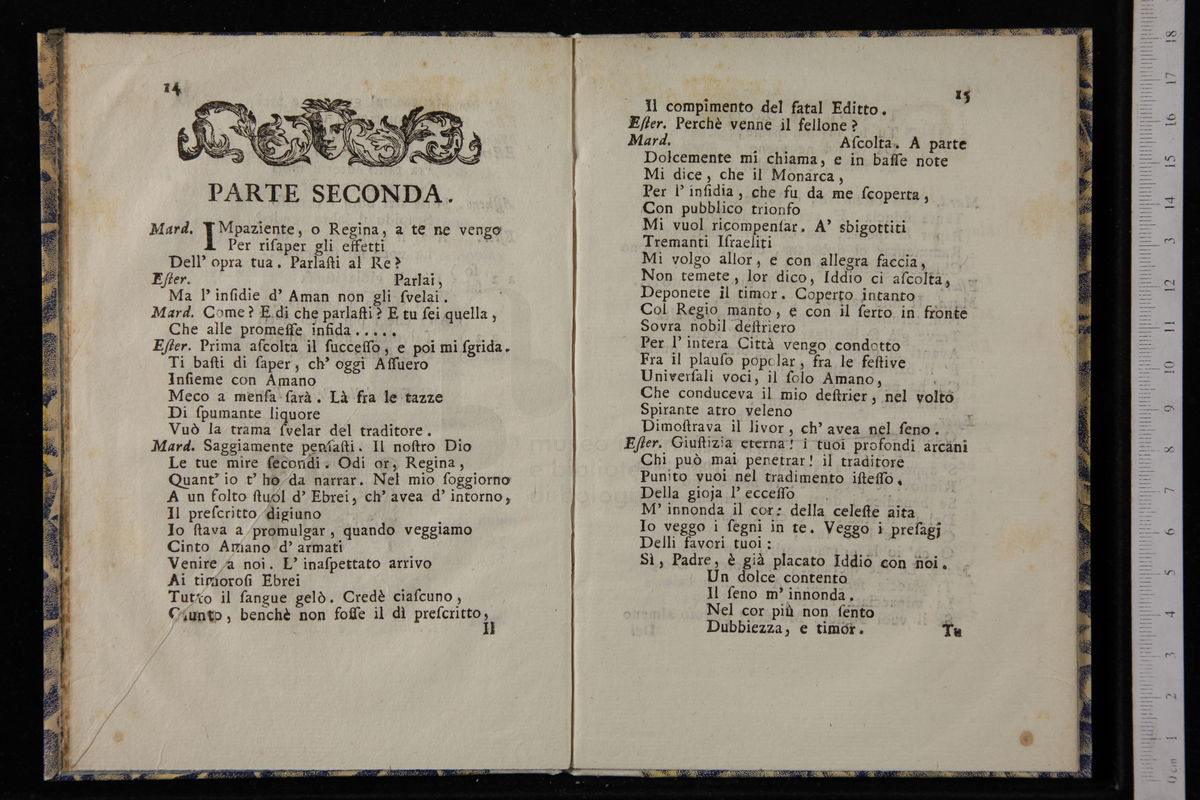 14
PARTE SECONDA.
Mard. IMpaziente, o Regina, a te ne vengo
Per riſaper gli effetti
Dell' opra tua. Parlaſti al Re?
Eſter. Parlai,
Ma l' inſidie d' Aman non gli ſvelai.
Mard. Come? E di che parlaſti? E tu ſei quella,
Che alle promeſſe infida.....
Eſter. Prima aſcolta il ſucceſſo, e poi mi ſgrida.
Ti baſti di ſaper, ch' oggi Aſſuero
Inſieme con Amano
Meco a menſa ſarà. Là fra le tazze
Di ſpumante liquore
Vuò la trama ſvelar del traditore.
Mard. Saggiamente penſaſti. Il noſtro Dio
Le tue mire ſecondi. Odi or, Regina,
Quant' io t' ho da narrar. Nel mio ſoggiorno
A un folto ſtuol d' Ebrei, ch' avea d' intorno,
Il preſcritto digiuno
Io ſtava a promulgar, quando veggiamo
Cinto Amano d' armati
Venire a noi. L' inaſpettato arrivo
Ai timoroſi Ebrei
Tutto il ſangue gelò. Credè ciaſcuno,
Giunto, benchè non foſſe il dì preſcritto,
Il
15
Il compimento del fatal Editto.
Eſter. Perchè venne il fellone?
Mard. Aſcolta. A parte
Dolcemente mi chiama, e in baſſe note
Mi dice, che il Monarca,
Per l' inſidia, che fu da me ſcoperta,
Con pubblico trionfo
Mi vuol ricompenſar. A' sbigottiti
Tremanti Iſraeliti
Mi volgo allor, e con allegra faccia,
Non temete, lor dico, Iddio ci aſcolta,
Deponete il timor. Coperto intanto
Col Regio manto, e con il ſerto in fronte
Sovra nobil deſtriero
Per l' intera Città vengo condotto
Fra il plauſo popolar, fra le feſtive
Univerſali voci, il ſolo Amano,
Che conduceva il mio deſtrier, nel volto
Spirante atro veleno
Dimoſtrava il livor, ch' avea nel ſeno.
Eſter. Giuſtizia eterna! i tuoi profondi arcani
Chi può mai penetrar! il traditore
Punito vuoi nel tradimento iſteſſo.
Della gioja l' ecceſſo
M' innonda il cor: della celeſte aita
Io veggo i ſegni in te. Veggo i preſagj
Delli favori tuoi:
Sì, Padre, è già placato Iddio con noi.
Un dolce contento
Il ſeno m' innonda.
Nel cor più non ſento
Dubbiezza, e timor.
Tu
museo
e biblioteca
di bologna
0 cm 1 2 3 4 5 6 7 8 9 10 11 12 13 14 15 16 17 18